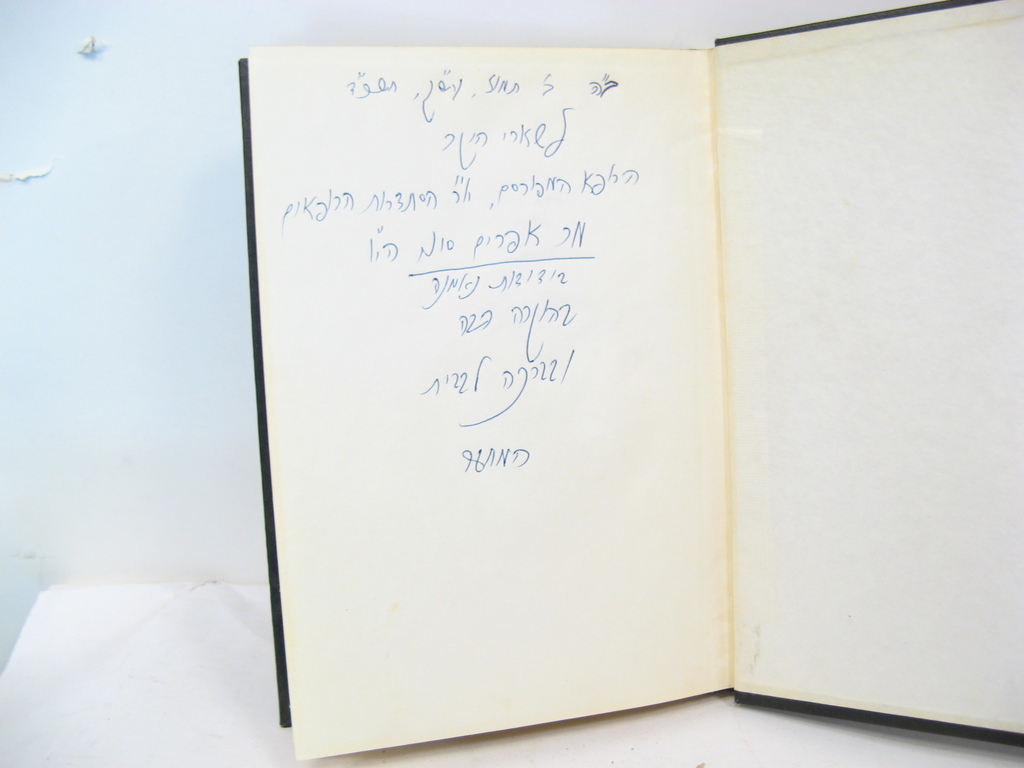 ב"ה ז' תמוז, תשמ"ד
לשארי היקר
הרופא המפורסם, יו"ר הסתדרות הרופאים
מר אפרים הי"ו
בידידות נאמנה
בהוקרה רבה
ובברכה לבבית
המחבר